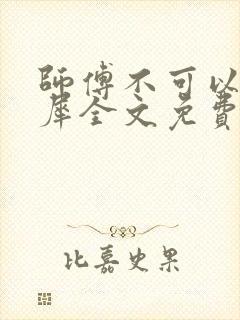 師傅不可以
犀全文免費
比嘉史果